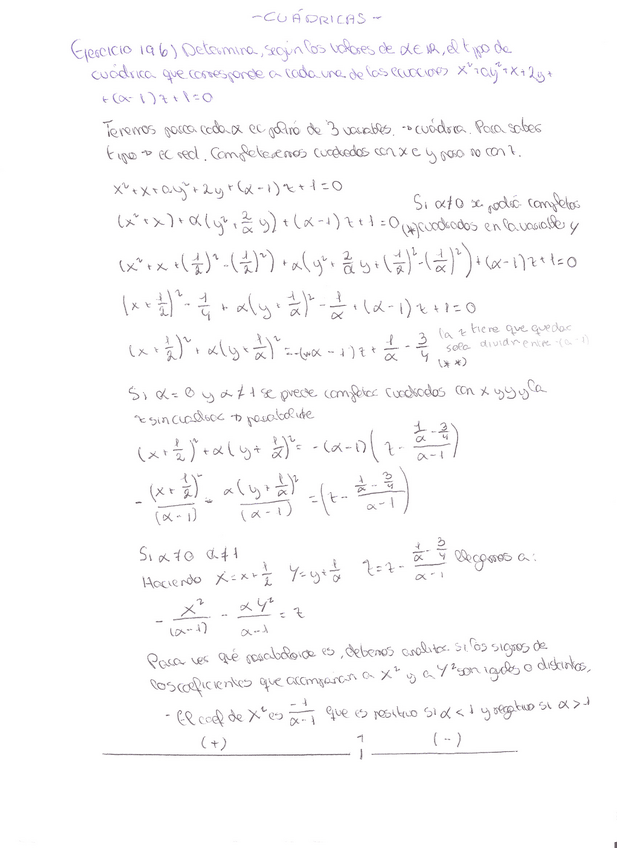 -CUÁDRICAS-
Ejercicio 19 b) Determina, según los valores de α∈ℝ, el tipo de
cuádrica que corresponde a cada una de las ecuaciones x²+αy²+x+2y+
+(α-1)z+1=0
Tenemos para cada α ec polinó de 3 variables. → cuádrica. Para saber
tipo → ec red. Completaremos cuadrados con x e y pero no con z.
x²+x+αy²+2y+(α-1)z+1=0
(x²+x)+α(y²+2/α y)+(α-1)z+1=0
Si α≠0 se podrá completar
(*) cuadrados en la variable y
(x²+x+(1/2)²-(1/2)²)+α(y²+2/α y+(1/α)²-(1/α)²)+(α-1)z+1=0
(x+1/2)²-1/4+α(y+1/α)²-1/α+(α-1)z+1=0
(x+1/2)²+α(y+1/α)²=-(α-1)z+1/α-3/4
la z tiene que quedar
sola dividir entre -(α-1)
(**)
Si α=0 y α≠1 se puede completar cuadrados con x y y y la
z sin cuadrar → paraboloide
(x+1/2)²+α(y+1/α)²=-(α-1)(z-(1/α-3/4)/(α-1))
-(x+1/2)²/(α-1)-α(y+1/α)²/(α-1)=(z-(1/α-3/4)/(α-1))
Si α≠0 α≠1
Haciendo X=x+1/2 Y=y+1/α Z=z-(1/α-3/4)/(α-1) llegamos a:
-X²/(α-1)-αY²/(α-1)=z
Para ver qué paraboloide es, debemos analizar si los signos de
los coeficientes que acompañan a X² y a Y² son iguales o distintos,
- El coef de X² es -1/(α-1) que es positivo si α<1 y negativo si α>1
(+) 1 (-)